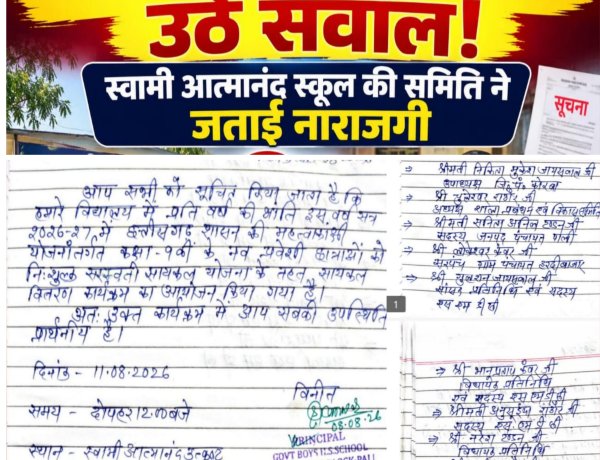 उठे सवाल!
स्वामी आत्मानंद स्कूल की समिति ने
जताई नाराजगी
सूचना
आप सभी को सूचित किया जाता है कि
हमारे विद्यालय में प्रति वर्ष की भांति इस वर्ष सत्र
2026-27 में छत्तीसगढ़ शासन की महत्वाकांक्षी
योजनांतर्गत कक्षा - 9वीं के नव प्रवेशी छात्राओं को
नि:शुल्क सरस्वती सायकल योजना के तहत सायकल
वितरण कार्यक्रम का आयोजन किया गया है।
अतः उक्त कार्यक्रम में आप सबकी उपस्थिति
प्रार्थनीय है।
दिनांक - 11.08.2026
विनीत
08.08.26
समय - दोपहर 12.00 बजे
PRINCIPAL
GOVT BOYS H.S. SCHOOL
स्थान - स्वामी आत्मानंद उत्कृष्ट
1
⇒ श्रीमती निकिता मुकेश जायसवाल जी
उपाध्यक्ष जि. पं. कोरबा
⇒ श्री राठौर जी
अध्यक्ष शाला प्रबंधन एवं विकास समिति
⇒ श्रीमती सरिता अनिल टंडन जी
सदस्य जनपद पंचायत पाली
⇒ श्री लोकेश्वर कंवर जी
सरपंच ग्राम पंचायत हरदीबाजार
⇒ श्री युवराज जायसवाल जी
सांसद प्रतिनिधि एवं सदस्य
एस एम डी सी
⇒ श्री भानुप्रताप कंवर जी
विधायक प्रतिनिधि
एवं सदस्य एस.एम.डी.सी
⇒ श्रीमती अनुसुईया राठौर जी
सदस्य एस.एम.डी.सी
⇒ श्री नरेश टंडन जी
विधायक प्रतिनिधि